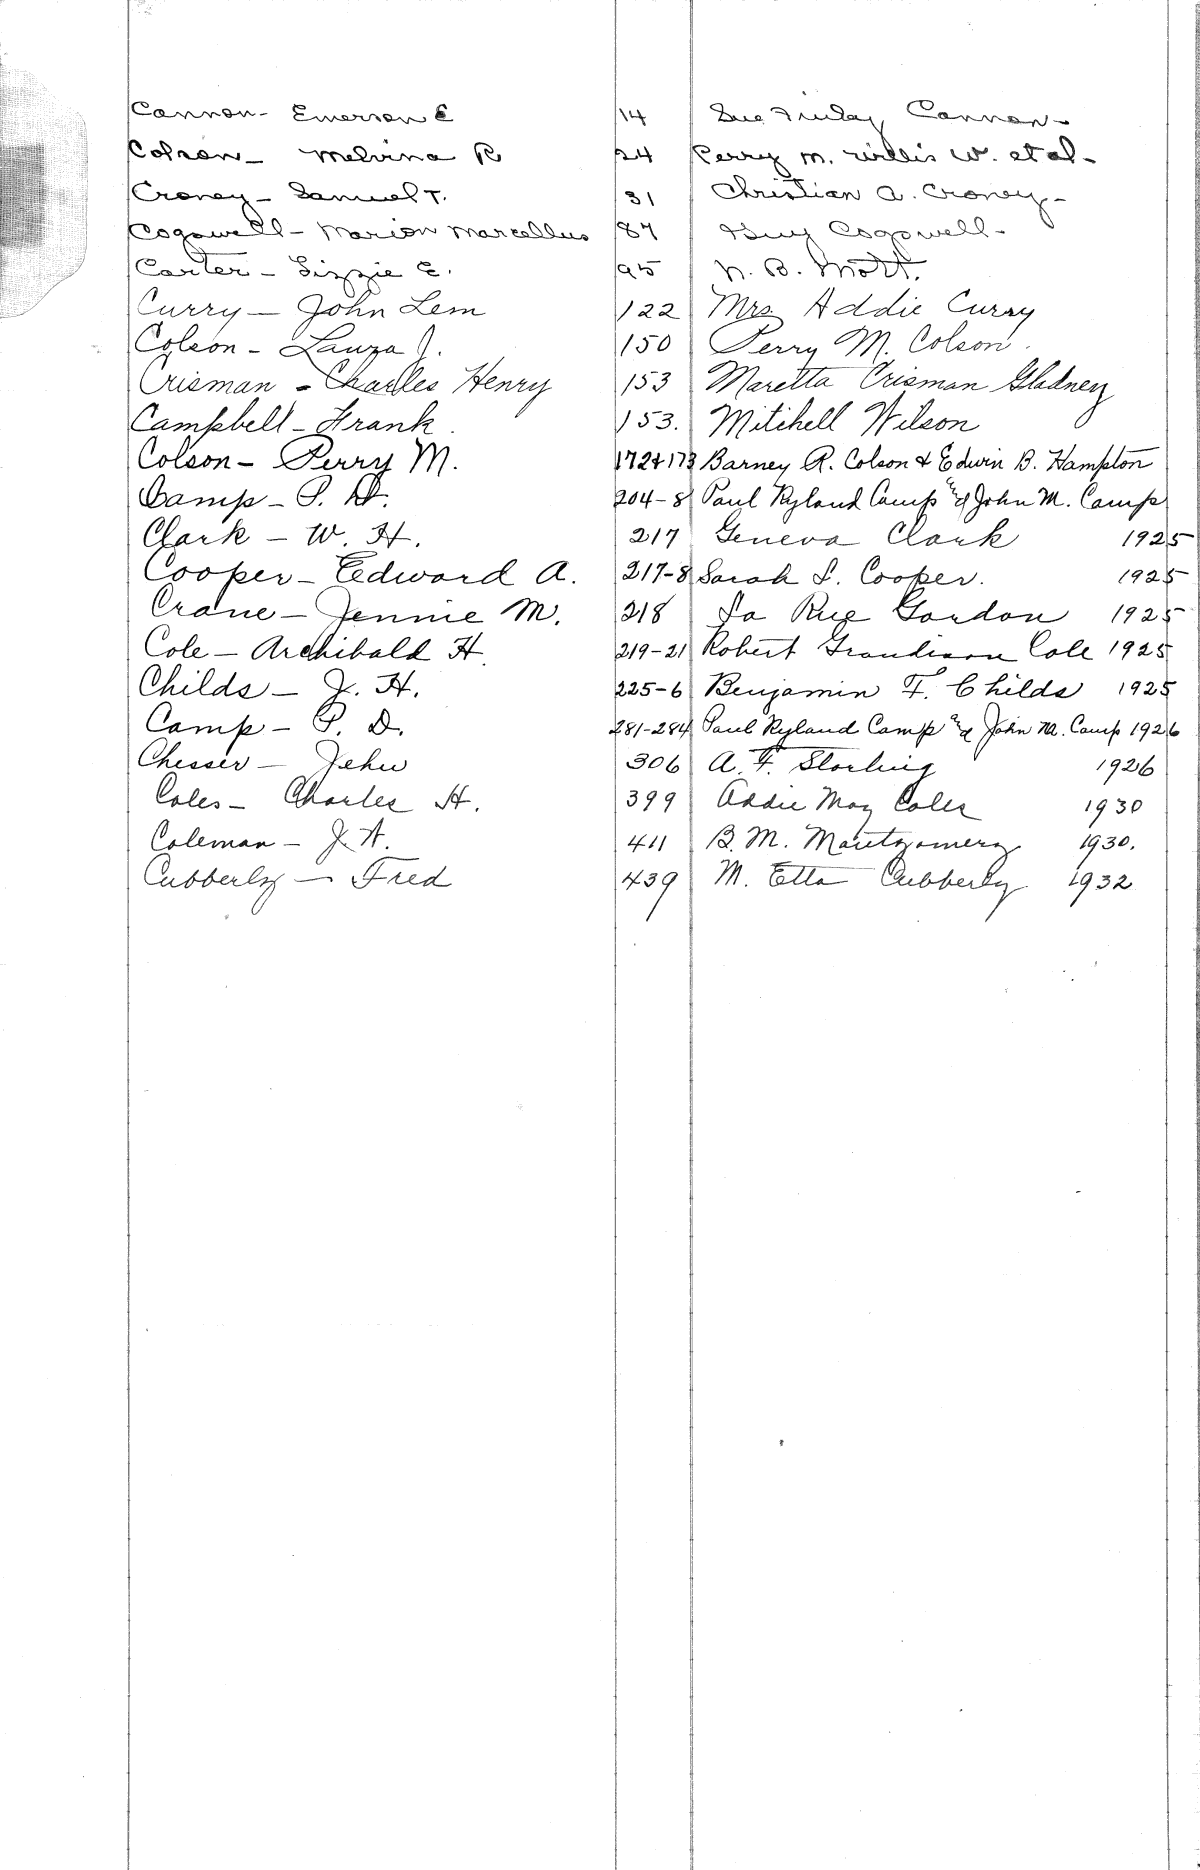 Cannon - Emerson E 14 Sue Finley Cannon -
Colson - Melvina R 24 Perry M. Willis W. et al -
Croney - Samuel T. 31 Christian A. Croney -
Cogswell - Marion Marcellus 87 Guy Cogswell -
Carter - Lizzie E. 95 N. B. Mott.
Curry - John Lem 122 Mrs Addie Curry
Colson - Laura J. 150 Perry M. Colson.
Crisman - Charles Henry 153 Maretta Crisman Gladney
Campbell - Frank. 153. Mitchell Wilson
Colson - Perry M. 172 & 173 Barney R. Colson & Edwin B. Hampton
Camp - P. D. 204-8 Paul Ryland Camp and John M. Camp
Clark - W. H. 217 Geneva Clark 1925
Cooper - Edward A. 217-8 Sarah L. Cooper. 1925
Crane - Jennie M. 218 La Rue Gordon 1925
Cole - Archibald H. 219-21 Robert Grandison Cole 1925
Childs - J. H. 225-6 Benjamin F. Childs 1925
Camp - P. D. 281-284 Paul Ryland Camp and John M. Camp 1926
Chesser - Jehu 306 A. F. Sterling 1926
Coles - Charles H. 399 Addie May Coles 1930
Coleman - J. A. 411 B. M. Montgomery 1930.
Cubberly - Fred 439 M. Etta Cubberly 1932